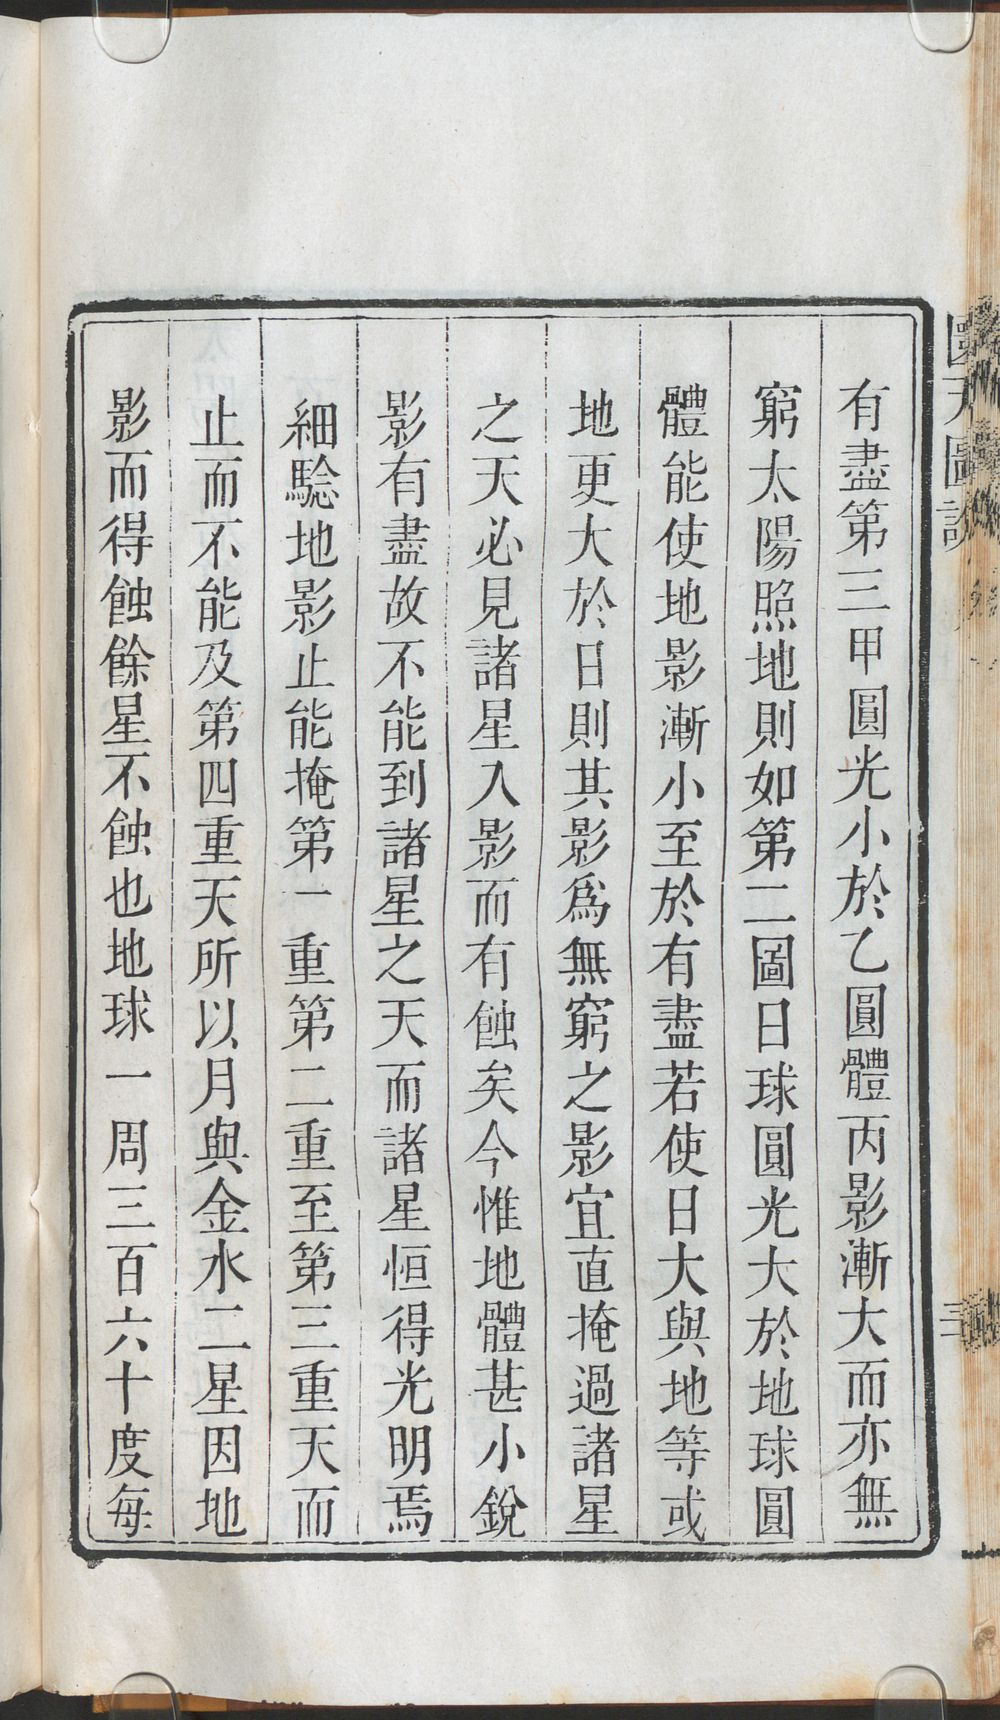 有盡第三甲圓光小於乙圓體丙影漸大而亦無
窮太陽照地則如第二圖日球圓光大於地球圓
體能使地影漸小至於有盡若使日大與地等或
地更大於日則其影爲無窮之影宜直掩過諸星
之天必見諸星入影而有蝕矣今惟地體甚小銳
影有盡故不能到諸星之天而諸星恒得光明焉
細騐地影止能掩第一重第二重至第三重天而
止而不能及第四重天所以月與金水二星因地
影而得蝕餘星不蝕也地球一周三百六十度每